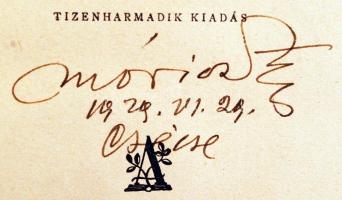 TIZENHARMADIK KIADÁS
Móricz Zs
1929. VI. 29.
Csécse
A